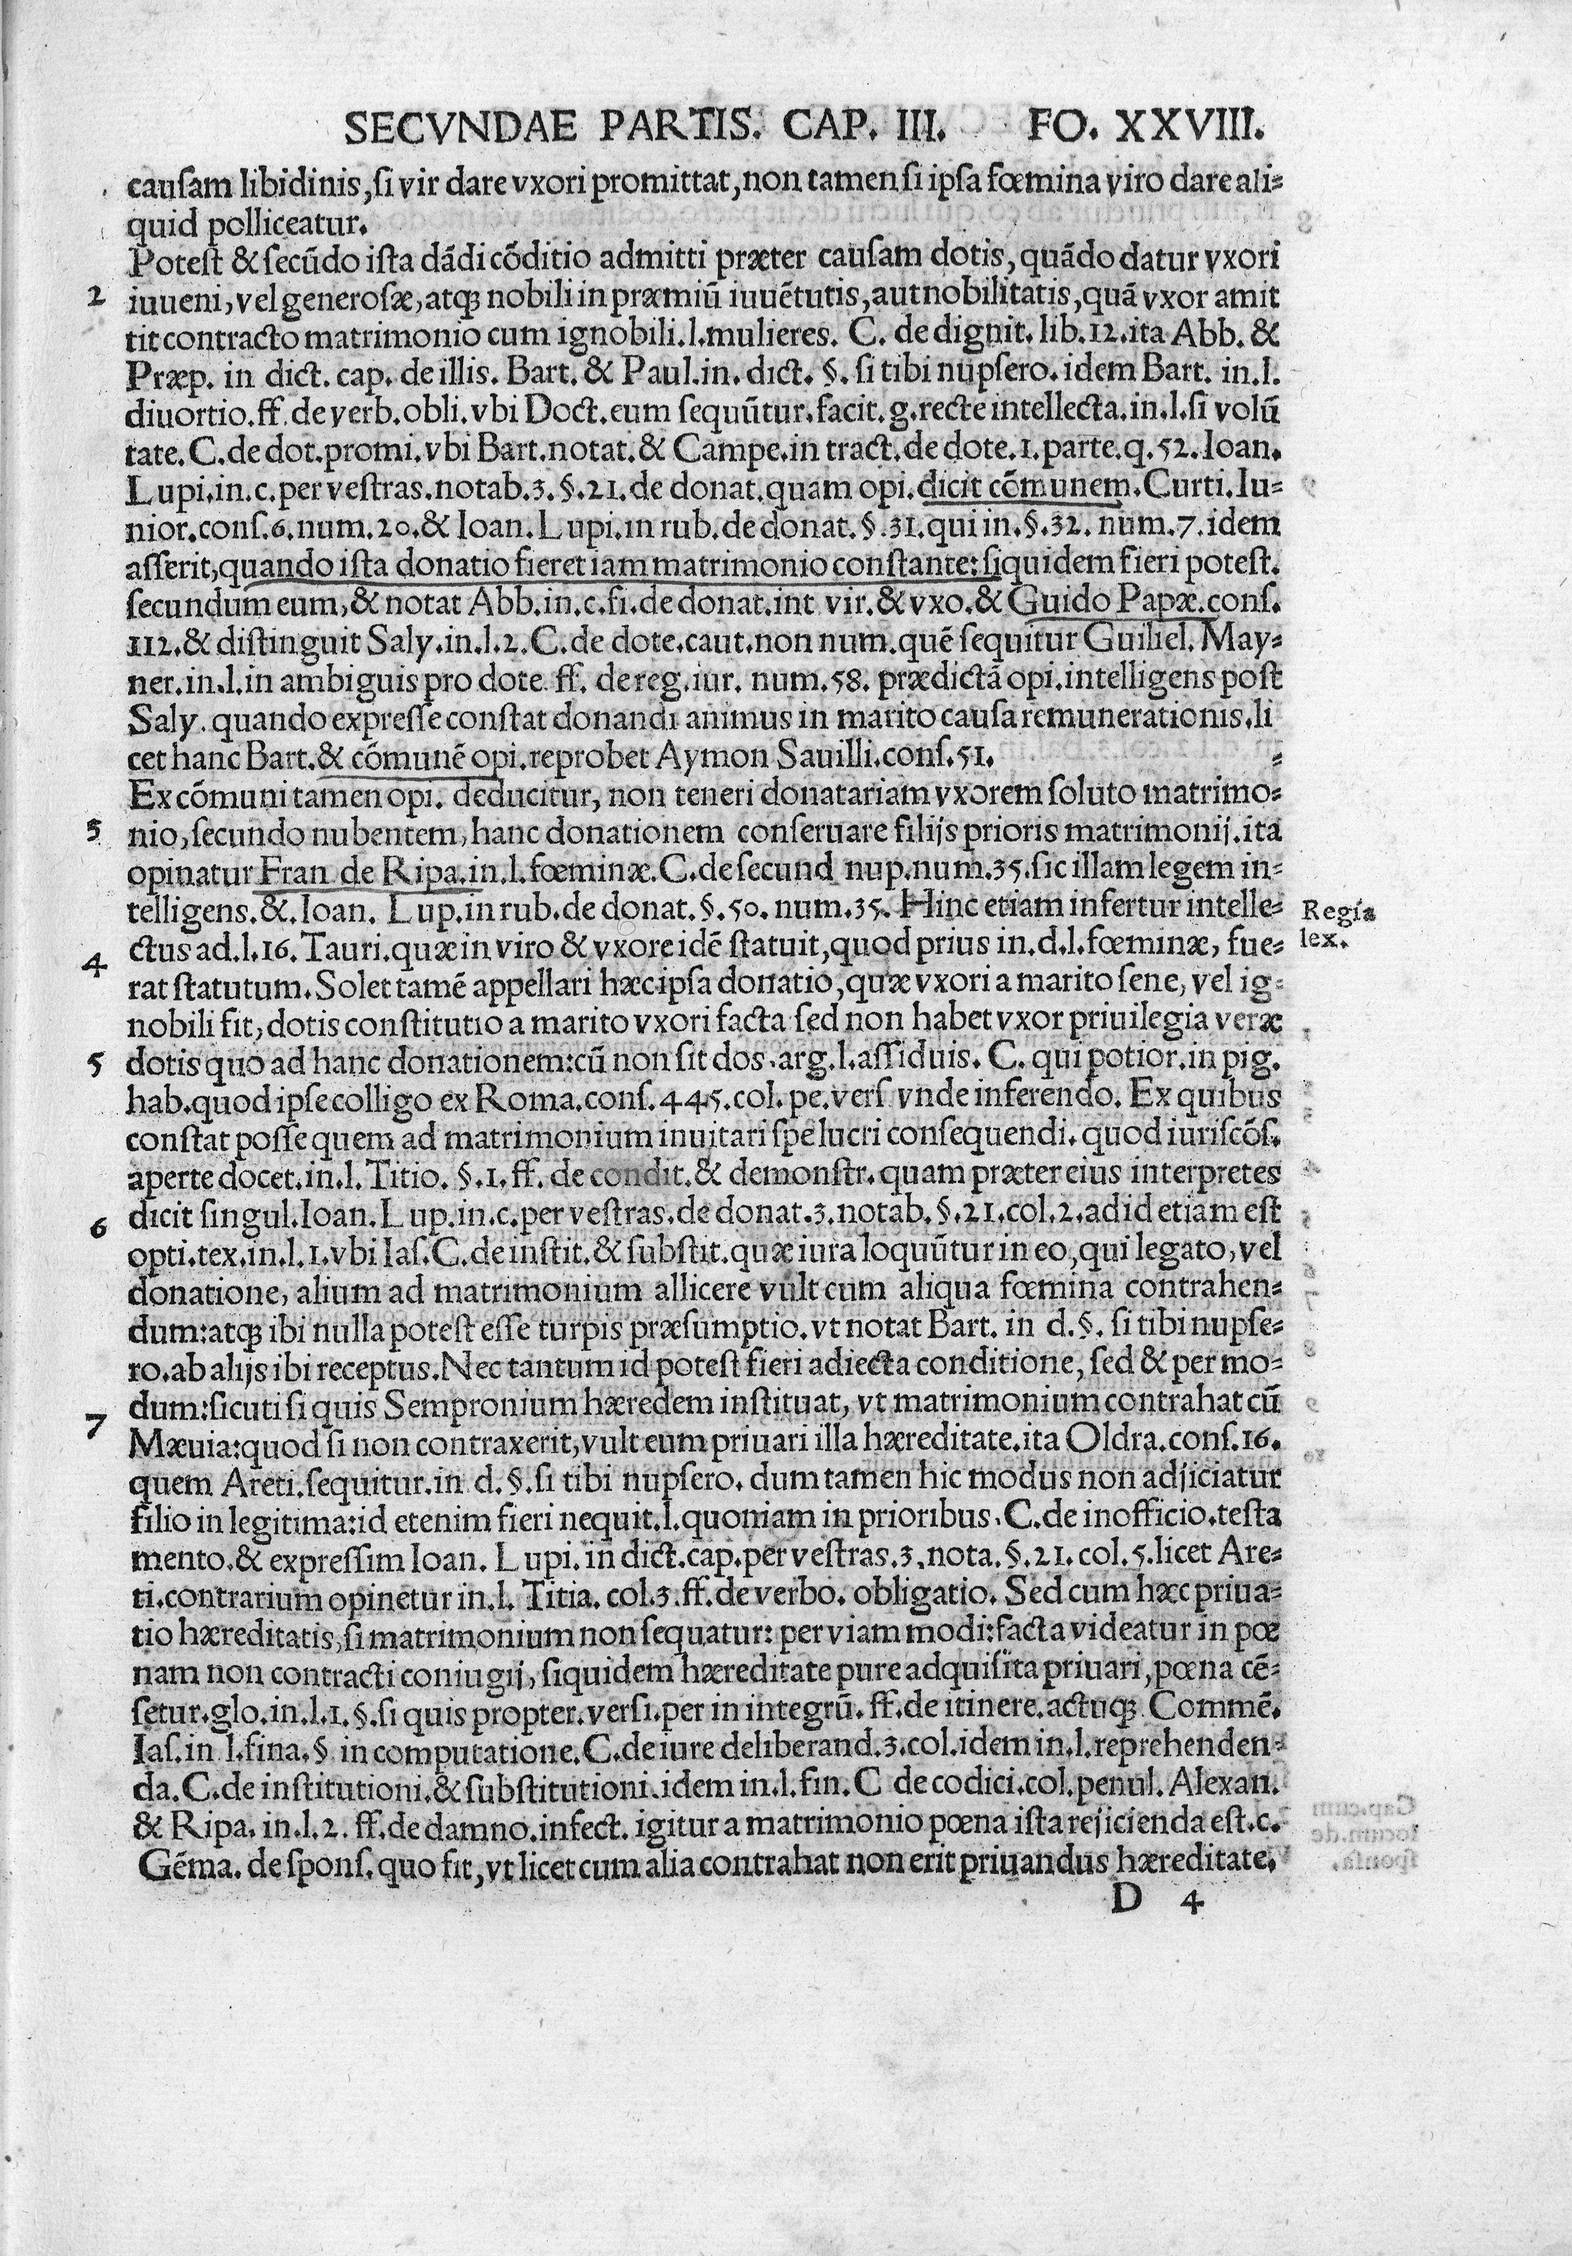 SECVNDAE PARTIS. CAP. III. FO. XXVIII.
causam libidinis, si vir dare vxori promittat, non tamen si ipsa fœmina viro dare ali-
quid polliceatur.
Potest & secũdo ista dãdi cõditio admitti præter causam dotis, quãdo datur vxori
2 iuueni, vel generosæ, atq; nobili in præmiũ iuuẽtutis, aut nobilitatis, quã vxor amit
tit contracto matrimonio cum ignobili. l. mulieres. C. de dignit. lib. 12. ita Abb. &
Præp. in dict. cap. de illis. Bart. & Paul. in. dict. §. si tibi nupsero. idem Bart. in. l.
diuortio. ff. de verb. obli. vbi Doct. eum sequũtur. facit. g. recte intellecta. in. l. si volũ
tate. C. de dot. promi. vbi Bart. notat. & Campe. in tract. de dote. 1. parte. q. 52. Ioan.
Lupi. in. c. per vestras. notab. 3. §. 21. de donat. quam opi. dicit cõmunem. Curti. Iu-
nior. cons. 6. num. 20. & Ioan. Lupi. in rub. de donat. §. 31. qui in. §. 32. num. 7. idem
asserit, quando ista donatio fieret iam matrimonio constante: siquidem fieri potest.
secundum eum, & notat Abb. in. c. fi. de donat. int vir. & vxo. & Guido Papæ. cons.
112. & distinguit Saly. in. l. 2. C. de dote. caut. non num. quẽ sequitur Guiliel. May-
ner. in. l. in ambiguis pro dote. ff. de reg. iur. num. 58. prædictã opi. intelligens post
Saly. quando expresse constat donandi animus in marito causa remunerationis. li
cet hanc Bart. & cõmunẽ opi. reprobet Aymon Sauilli. cons. 51.
Ex cõmuni tamen opi. deducitur, non teneri donatariam vxorem soluto matrimo-
3 nio, secundo nubentem, hanc donationem conseruare filijs prioris matrimonij. ita
opinatur Fran de Ripa. in. l. fœminæ. C. de secund nup. num. 35. sic illam legem in-
telligens. &. Ioan. Lup. in rub. de donat. §. 50. num. 35. Hinc etiam infertur intelle-
Regia
lex.
4 ctus ad. l. 16. Tauri. quæ in viro & vxore idẽ statuit, quod prius in. d. l. fœminæ, fue-
rat statutum. Solet tamẽ appellari hæc ipsa donatio, quæ vxori a marito sene, vel ig-
nobili fit, dotis constitutio a marito vxori facta sed non habet vxor priuilegia veræ
5 dotis quo ad hanc donationem: cũ non sit dos. arg. l. assiduis. C. qui potior. in pig.
hab. quod ipse colligo ex Roma. cons. 445. col. pe. vers vnde inferendo. Ex quibus
constat posse quem ad matrimonium inuitari spe lucri consequendi. quod iuriscõs.
aperte docet. in. l. Titio. §. 1. ff. de condit. & demonstr. quam præter eius interpretes
6 dicit singul. Ioan. Lup. in. c. per vestras. de donat. 3. notab. §. 21. col. 2. ad id etiam est
opti. tex. in. l. 1. vbi Ias. C. de instit. & substit. quæ iura loquũtur in eo, qui legato, vel
donatione, alium ad matrimonium allicere vult cum aliqua fœmina contrahen-
dum: atq; ibi nulla potest esse turpis præsumptio. vt notat Bart. in d. §. si tibi nupse-
ro. ab alijs ibi receptus. Nec tantum id potest fieri adiecta conditione, sed & per mo-
7 dum: sicuti si quis Sempronium hæredem instituat, vt matrimonium contrahat cũ
Mæuia: quod si non contraxerit, vult eum priuari illa hæreditate. ita Oldra. cons. 16.
quem Areti. sequitur. in d. §. si tibi nupsero. dum tamen hic modus non adjiciatur
filio in legitima: id etenim fieri nequit. l. quoniam in prioribus. C. de inofficio. testa
mento. & expressim Ioan. Lupi. in dict. cap. per vestras. 3. nota. §. 21. col. 5. licet Are-
ti. contrarium opinetur in. l. Titia. col. 3. ff. de verbo. obligatio. Sed cum hæc priua-
tio hæreditatis, si matrimonium non sequatur: per viam modi: facta videatur in pœ
nam non contracti coniugij, siquidem hæreditate pure adquisita priuari, pœna cẽ-
setur. glo. in. l. 1. §. si quis propter. versi. per in integrũ. ff. de itinere. actuq; Commẽ.
Ias. in l. fina. § in computatione. C. de iure deliberand. 3. col. idem in. l. reprehenden-
da. C. de institutioni. & substitutioni. idem in. l. fin. C de codici. col. penul. Alexan.
& Ripa. in. l. 2. ff. de damno. infect. igitur a matrimonio pœna ista rejicienda est. c.
Gẽma. de spons. quo fit, vt licet cum alia contrahat non erit priuandus hæreditate.
D 4